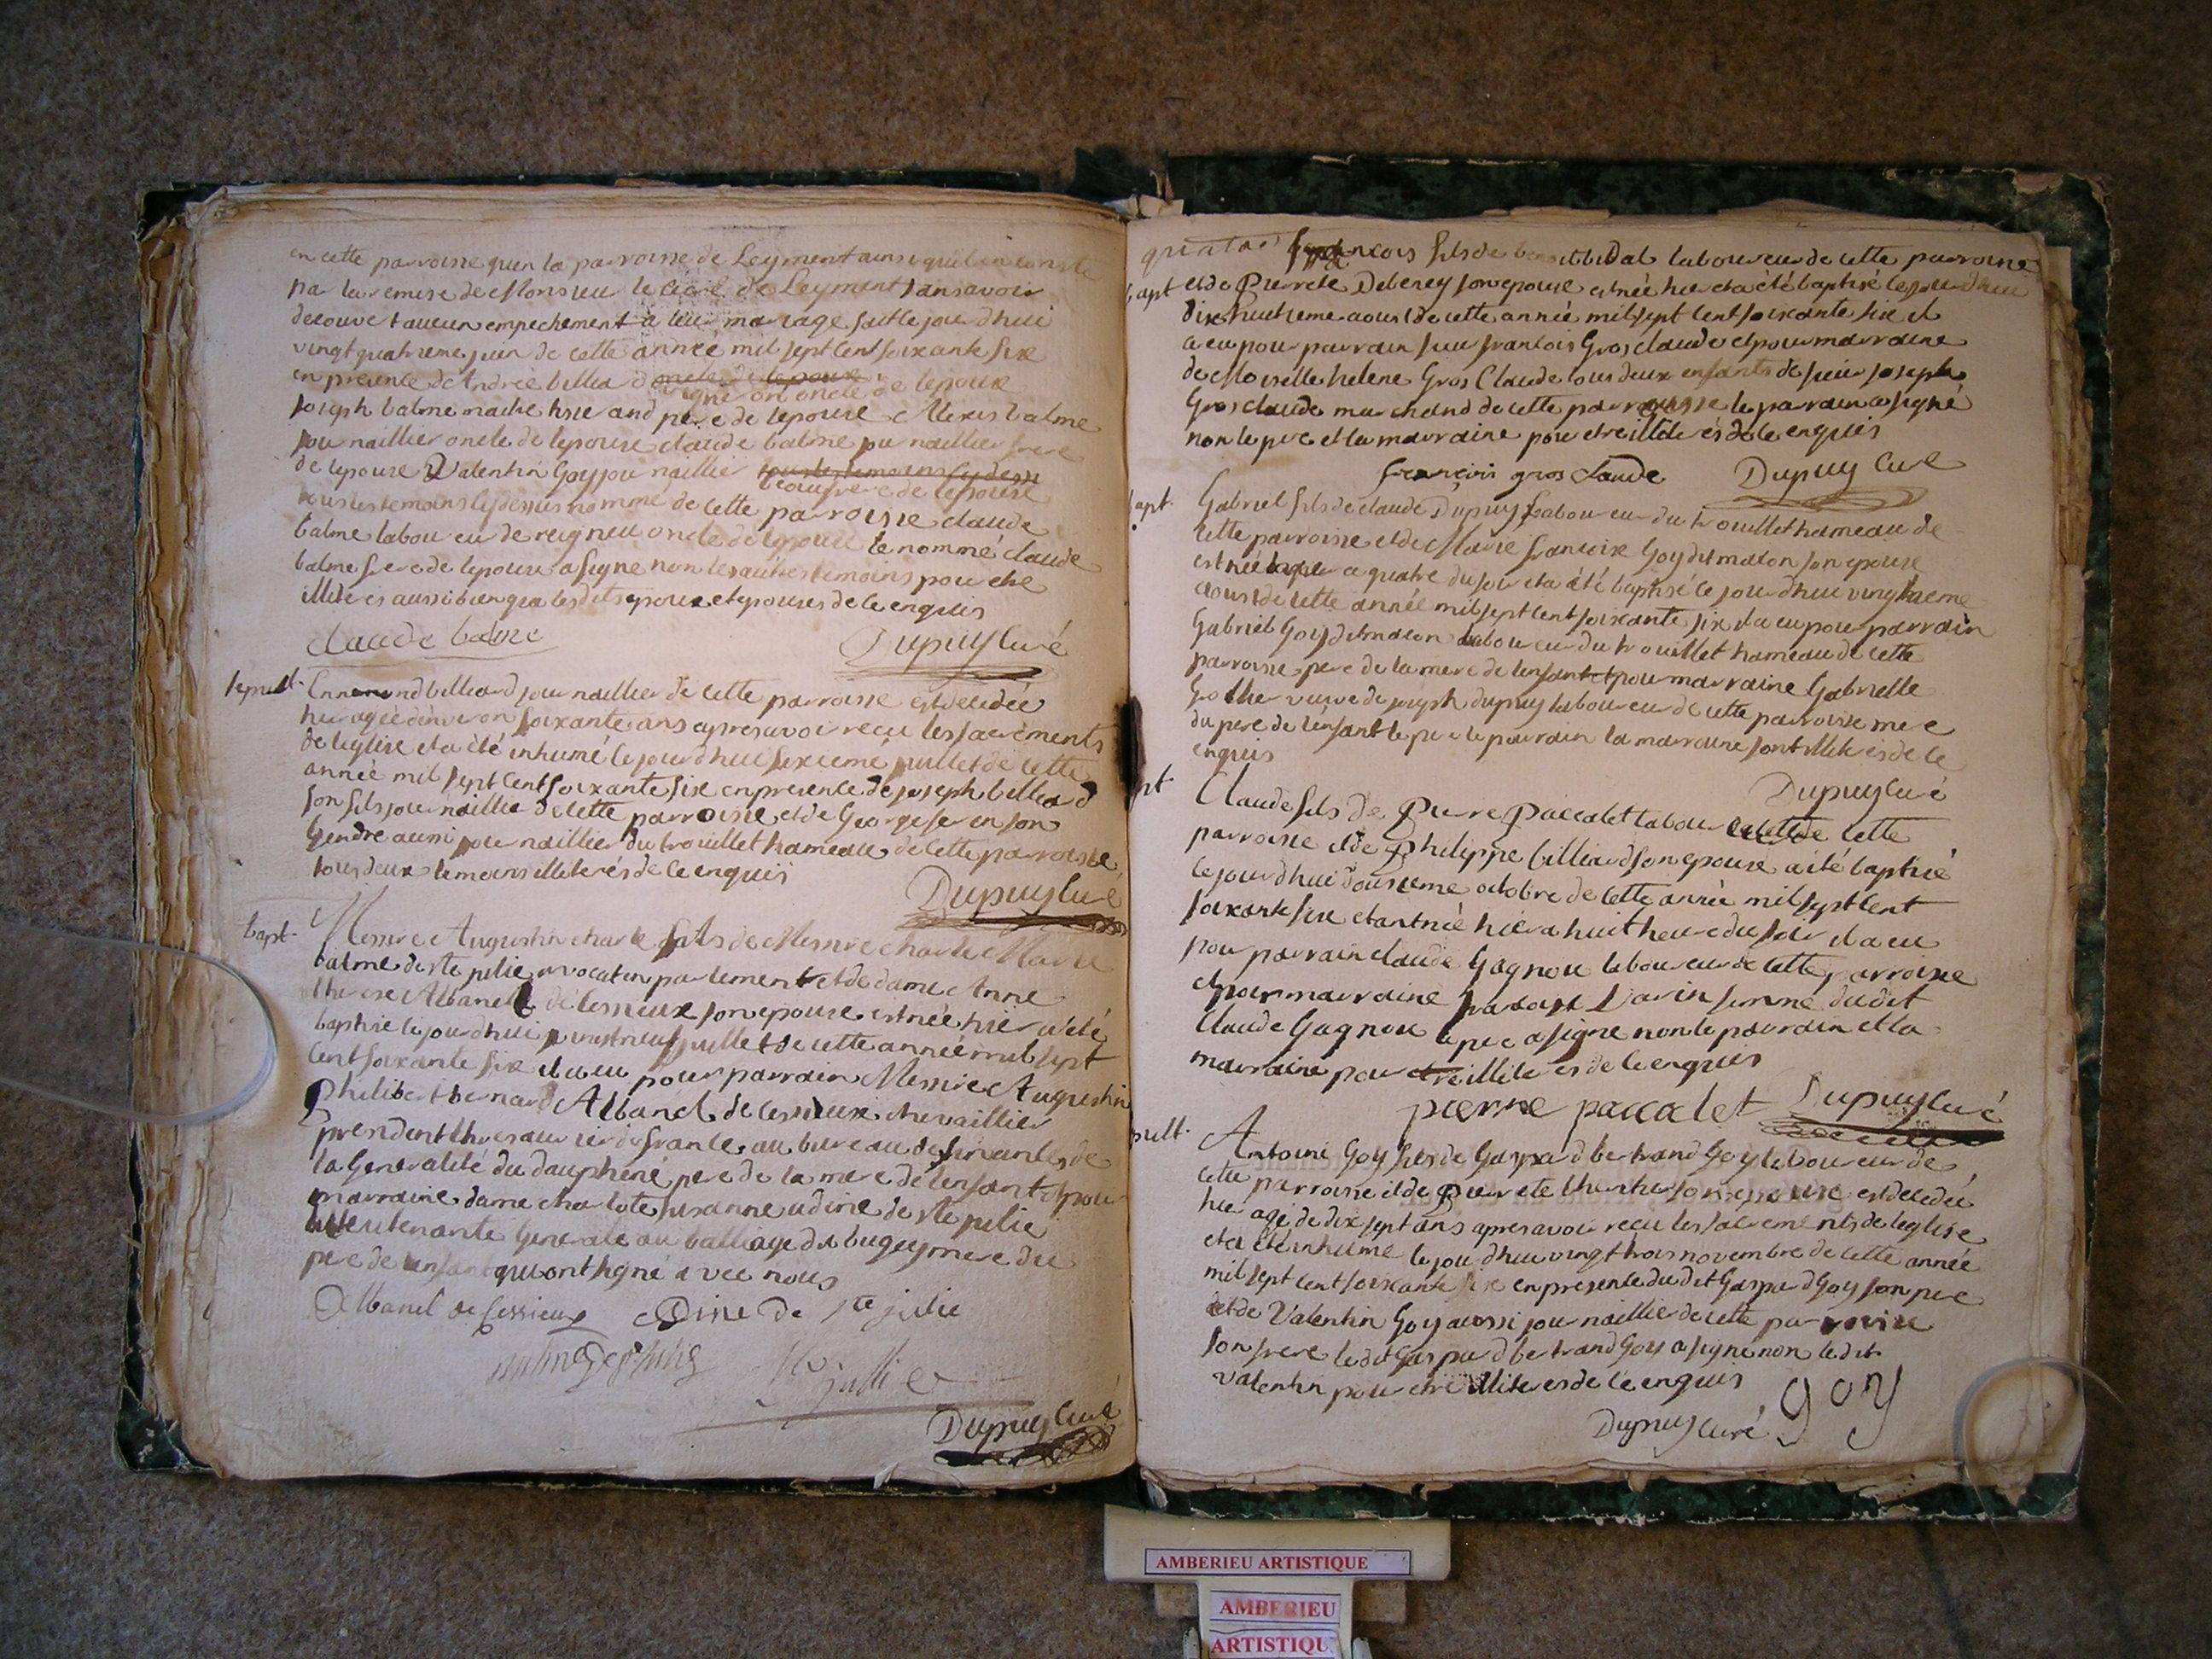 en cette parroisse quen la parroisse de Leyment ainsi quil en conste
par la remise de Monsieur le curé de Leyment sans avoir
decouvert aucun empechement a leur mariage fait le jourdhui
vingt quatrieme juin de cette année mil sept cent soixante six
en presence dAndré belliard oncle de lepoux
vigneron oncle de lepoux
joseph balme pere de lepouse Alexis balme
journaillier oncle de lepouse claude balme journaillier frere
de lepouse Valentin Goy journaillier tous les temoins cy dessu
beaufrere de lepouse
tous les temoins cy dessus nommé de cette parroisse claude
balme laboureur de reigneu oncle de lepouse le nommé claude
balme frere de lepouse a signe non les autres temoins pour etre
illiterés aussi bien que lesdits epoux et epouses de ce enquis
claude balme
Dupuy Curé
sepult.
Ennemond belliard journaillier de cette parroisse est decedée
hier agée denviron soixante ans apres avoir recu les sacréments
de leglise et a été inhumé le jourdhui sixieme juillet de cette
année mil sept cent soixante six en presence de joseph belliard
son fils journaillier de cette parroisse et de George son
Gendre aussi journaillier du trouillet hameau de cette parroisse
tous deux temoins illiterés de ce enquis
Dupuy Curé
bapt.
Messire Augustin charle fils de Messire charle Marie
balme de ste julie avocat en parlement et de dame Anne
therese Albanel de Cessieux son epouse est née hier a été
baptisé le jourdhui vingt neuf juillet de cette année mil sept
cent soixante six il a eu pour parrain Messire Augustin
Philibert bernard Albanel de Cessieux chevaillier
president thresaurier de france au bureau des finances de
la Generalité du dauphiné pere de la mere de lenfant et pour
marraine dame charlote susanne udine de ste julie
lieutenante Generale au balliage du bugey mere du
pere de lenfant qui ont signé avec nous
Albanel de Cessieux Dine de ste julie
balme de st julie
ste julie
Dupuy Curé
francois fils de benoit bidal laboureur de cette parroisse
bapt
et de Pierrete Debeney son epouse est née hier et a été baptisé le jourdhui
dix huitieme aoust de cette année mil sept cent soixante six il
a eu pour parrain sieur francois Gros claude et pour marraine
demoiselle helene Gros Claude tous deux enfants de sieur joseph
Gros claude marchand de cette parroisse le parrain a signé
non le pere et la marraine pour etre illiterés de ce enquis
francois gros claude Dupuy Curé
bapt.
Gabriel fils de claude Dupuy Laboureur du trouillet hameau de
cette parroisse et de Marie francoise Goy dit maton son epouse
est née hier a quatre du soir et a été baptisé le jourdhui vingtieme
aoust de cette année mil sept cent soixante six il a eu pour parrain
Gabriel Goy dit maton laboureur du trouillet hameau de cette
parroisse pere de la mere de lenfant et pour marraine Gabrielle
veuve de joseph dupuy laboureur de cette parroisse mere
du pere de lenfant le pere le parrain la marraine sont illiterés de ce
enquis
Dupuy Curé
Claude fils de Pierre Paccalet laboureur de cette
parroisse et de Philippe billiard son epouse a été baptisé
le jourdhui dousieme octobre de cette année mil sept cent
soixante six etant née hier a huit heure du soir il a eu
pour parrain claude Gagneu laboureur de cette parroisse
et pour marraine femme dudit
Claude Gagneu le pere a signe non le parrain et la
marraine pour etre illiterés de ce enquis
pierre paccalet Dupuy Curé
Antoine Goy fils de Gaspard bertrand Goy laboureur de
cette parroisse et de Pierrete son epouse est decedée
hier agé de dix sept ans apres avoir recu les sacrements de leglise
et a été inhumé le jourdhui vingt trois novembre de cette année
mil sept cent soixante six en presence dudit Gaspard Goy son pere
et de Valentin Goy aussi journaillier de cette parroisse
son frere ledit Gaspard bertrand Goy a signé non ledit
valentin pour etre illiterés de ce enquis
goy
Dupuy Curé
AMBERIEU ARTISTIQUE
AMBERIEU
ARTISTIQU